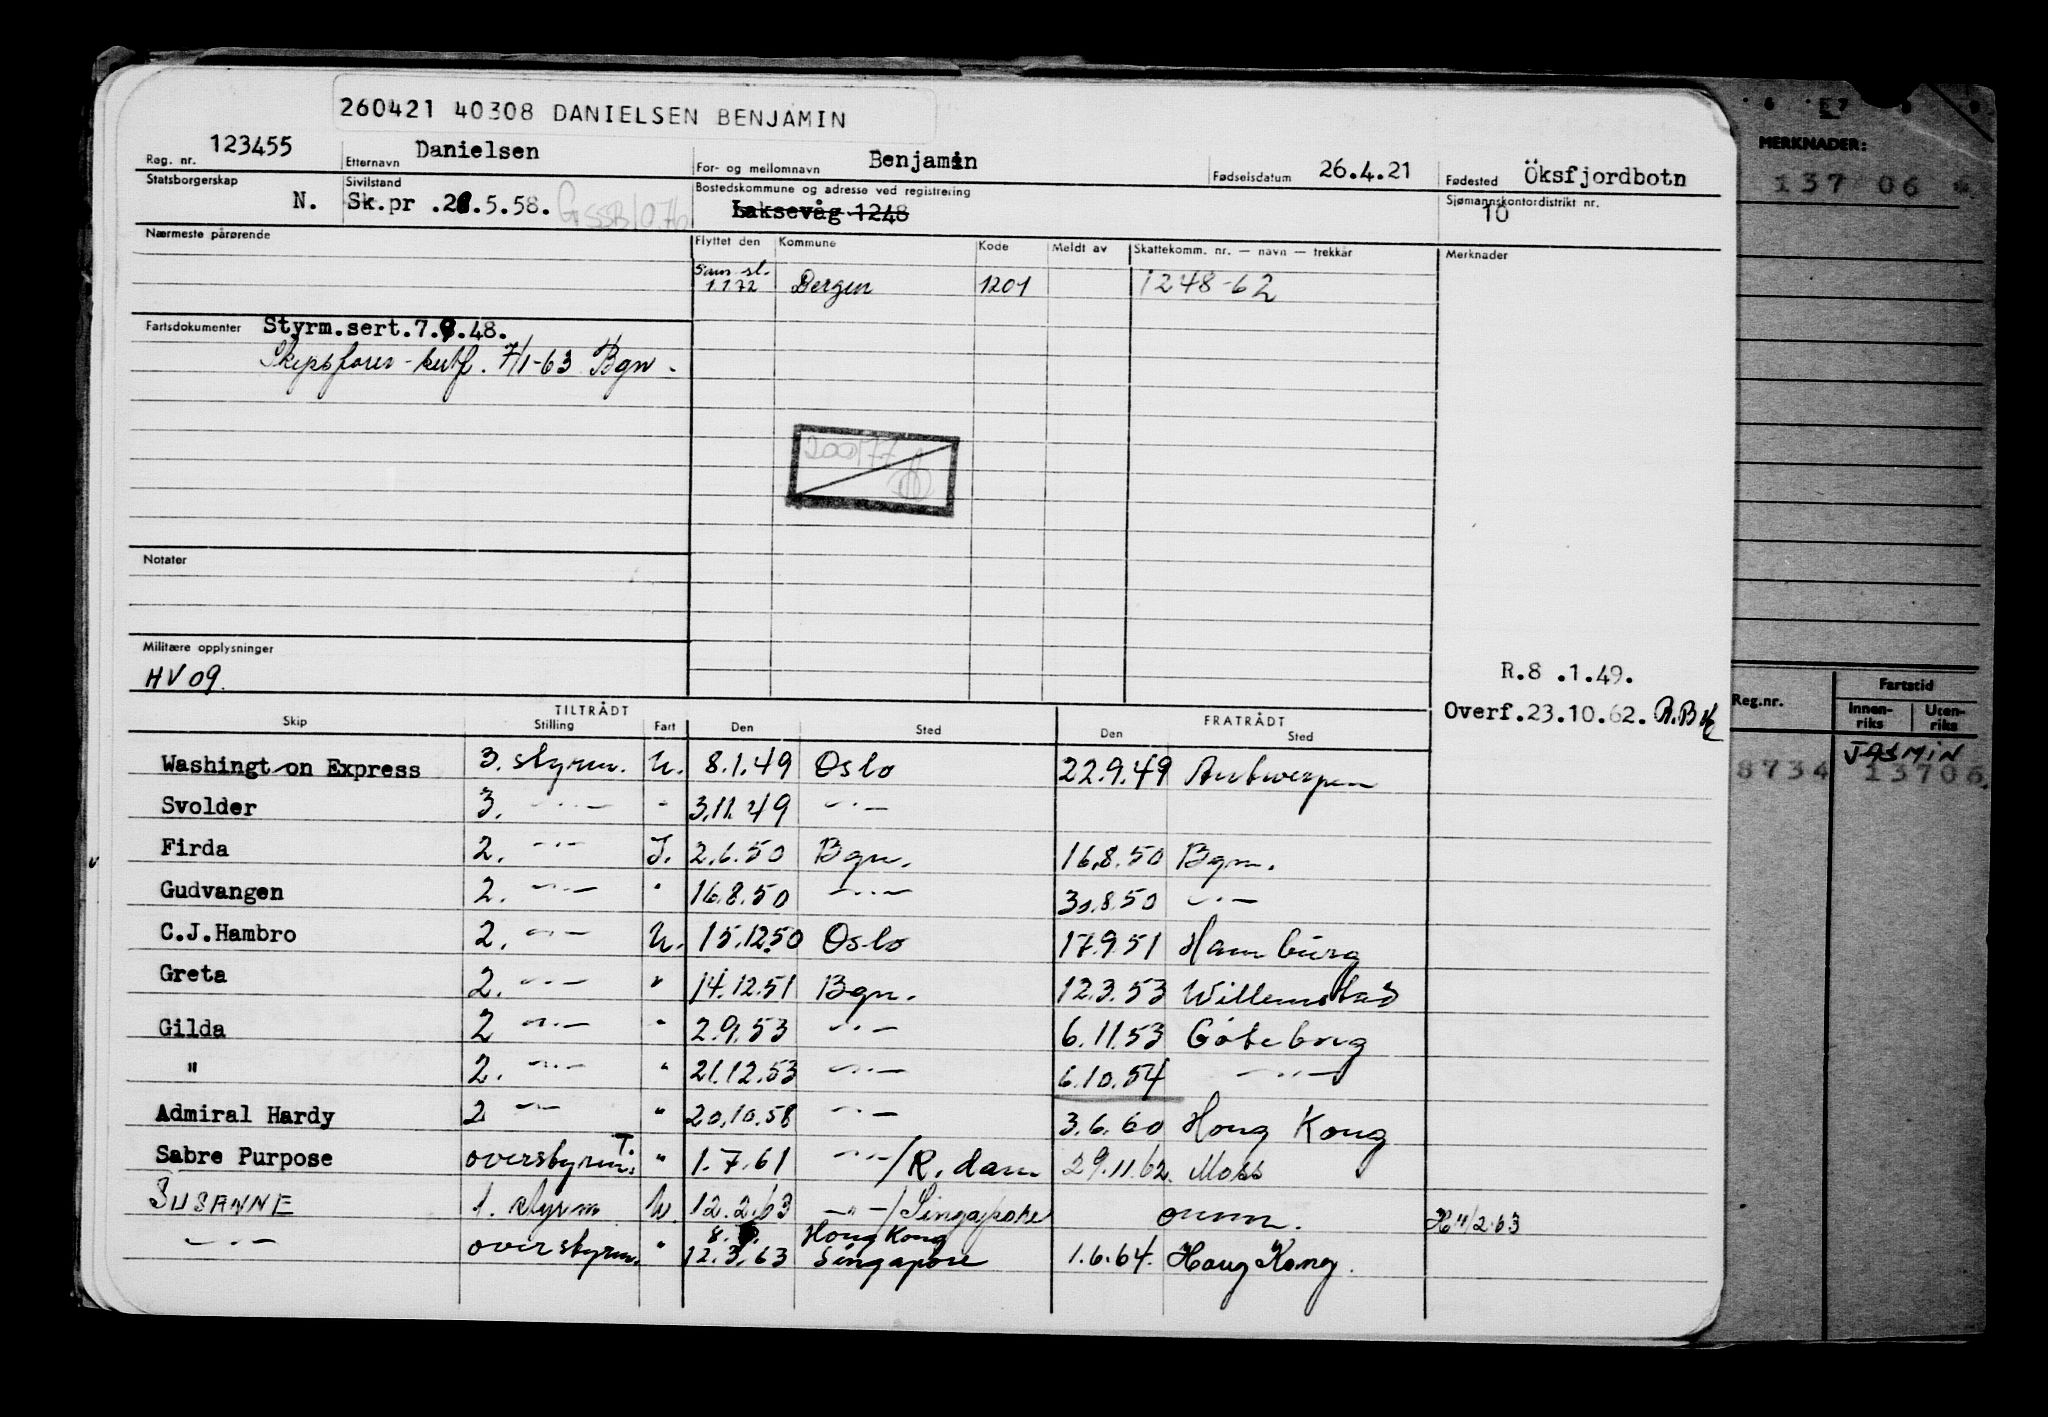 260421 40308 DANIELSEN BENJAMIN
Reg. nr. 123455 Etternavn Danielsen For- og mellomnavn Benjamin Fødselsdatum 26.4.21 Fødested Öksfjordbotn
Statsborgerskap N. Sivilstand Sk.pr .28.5.58. Bostedskommune og adresse ved registrering Laksevåg 1248 Sjømannskontordistrikt nr. 10
Nærmeste pårørende Flyttet den Kommune Kode Meldt av Skattekomm. nr. — navn — trekkår Merknader
Sam.sl. 1.1.72 Bergen 1201 1248-62
Fartsdokumenter Styrm.sert.7.9.48.
Skipsfører-sertf. 7/1-63 Bgn.
200177
Notater
Militære opplysninger
HV 09.
R.8 .1.49.
Overf.23.10.62.
TILTRÅDT FRATRÅDT
Skip Stilling Fart Den Sted Den Sted
Washington Express 3. styrm. U. 8.1.49 Oslo 22.9.49 Antwerpen
Svolder 3. —"— " 3.11.49 —"—
Firda 2. —"— I. 2.6.50 Bgn. 16.8.50 Bgn.
Gudvangen 2. —"— " 16.8.50 —"— 30.8.50 —"—
C.J.Hambro 2. —"— U. 15.12.50 Oslo 17.9.51 Hamburg
Greta 2. —"— " 14.12.51 Bgn. 12.3.53 Willemstad
Gilda 2 —"— " 2.9.53 —"— 6.11.53 Göteborg
" 2. —"— " 21.12.53 —"— 6.10.54 —"—
Admiral Hardy 2 —"— " 20.10.58 —"— 3.6.60 Hong Kong
Sabre Purpose overstyrm. T. " 1.7.61 —"—/R.dam 29.11.62 Moss
SUSANNE 1. styrm U. 12.2.63 —"—/Singapore omm. 11/2.63
—"— overstyrm. " 8. 12.3.63 Hong Kong Singapore 1.6.64. Hong Kong.
MERKNADER:
137 06
Reg.nr. Fartstid
Innenriks Utenriks
JASMIN
8734 13706